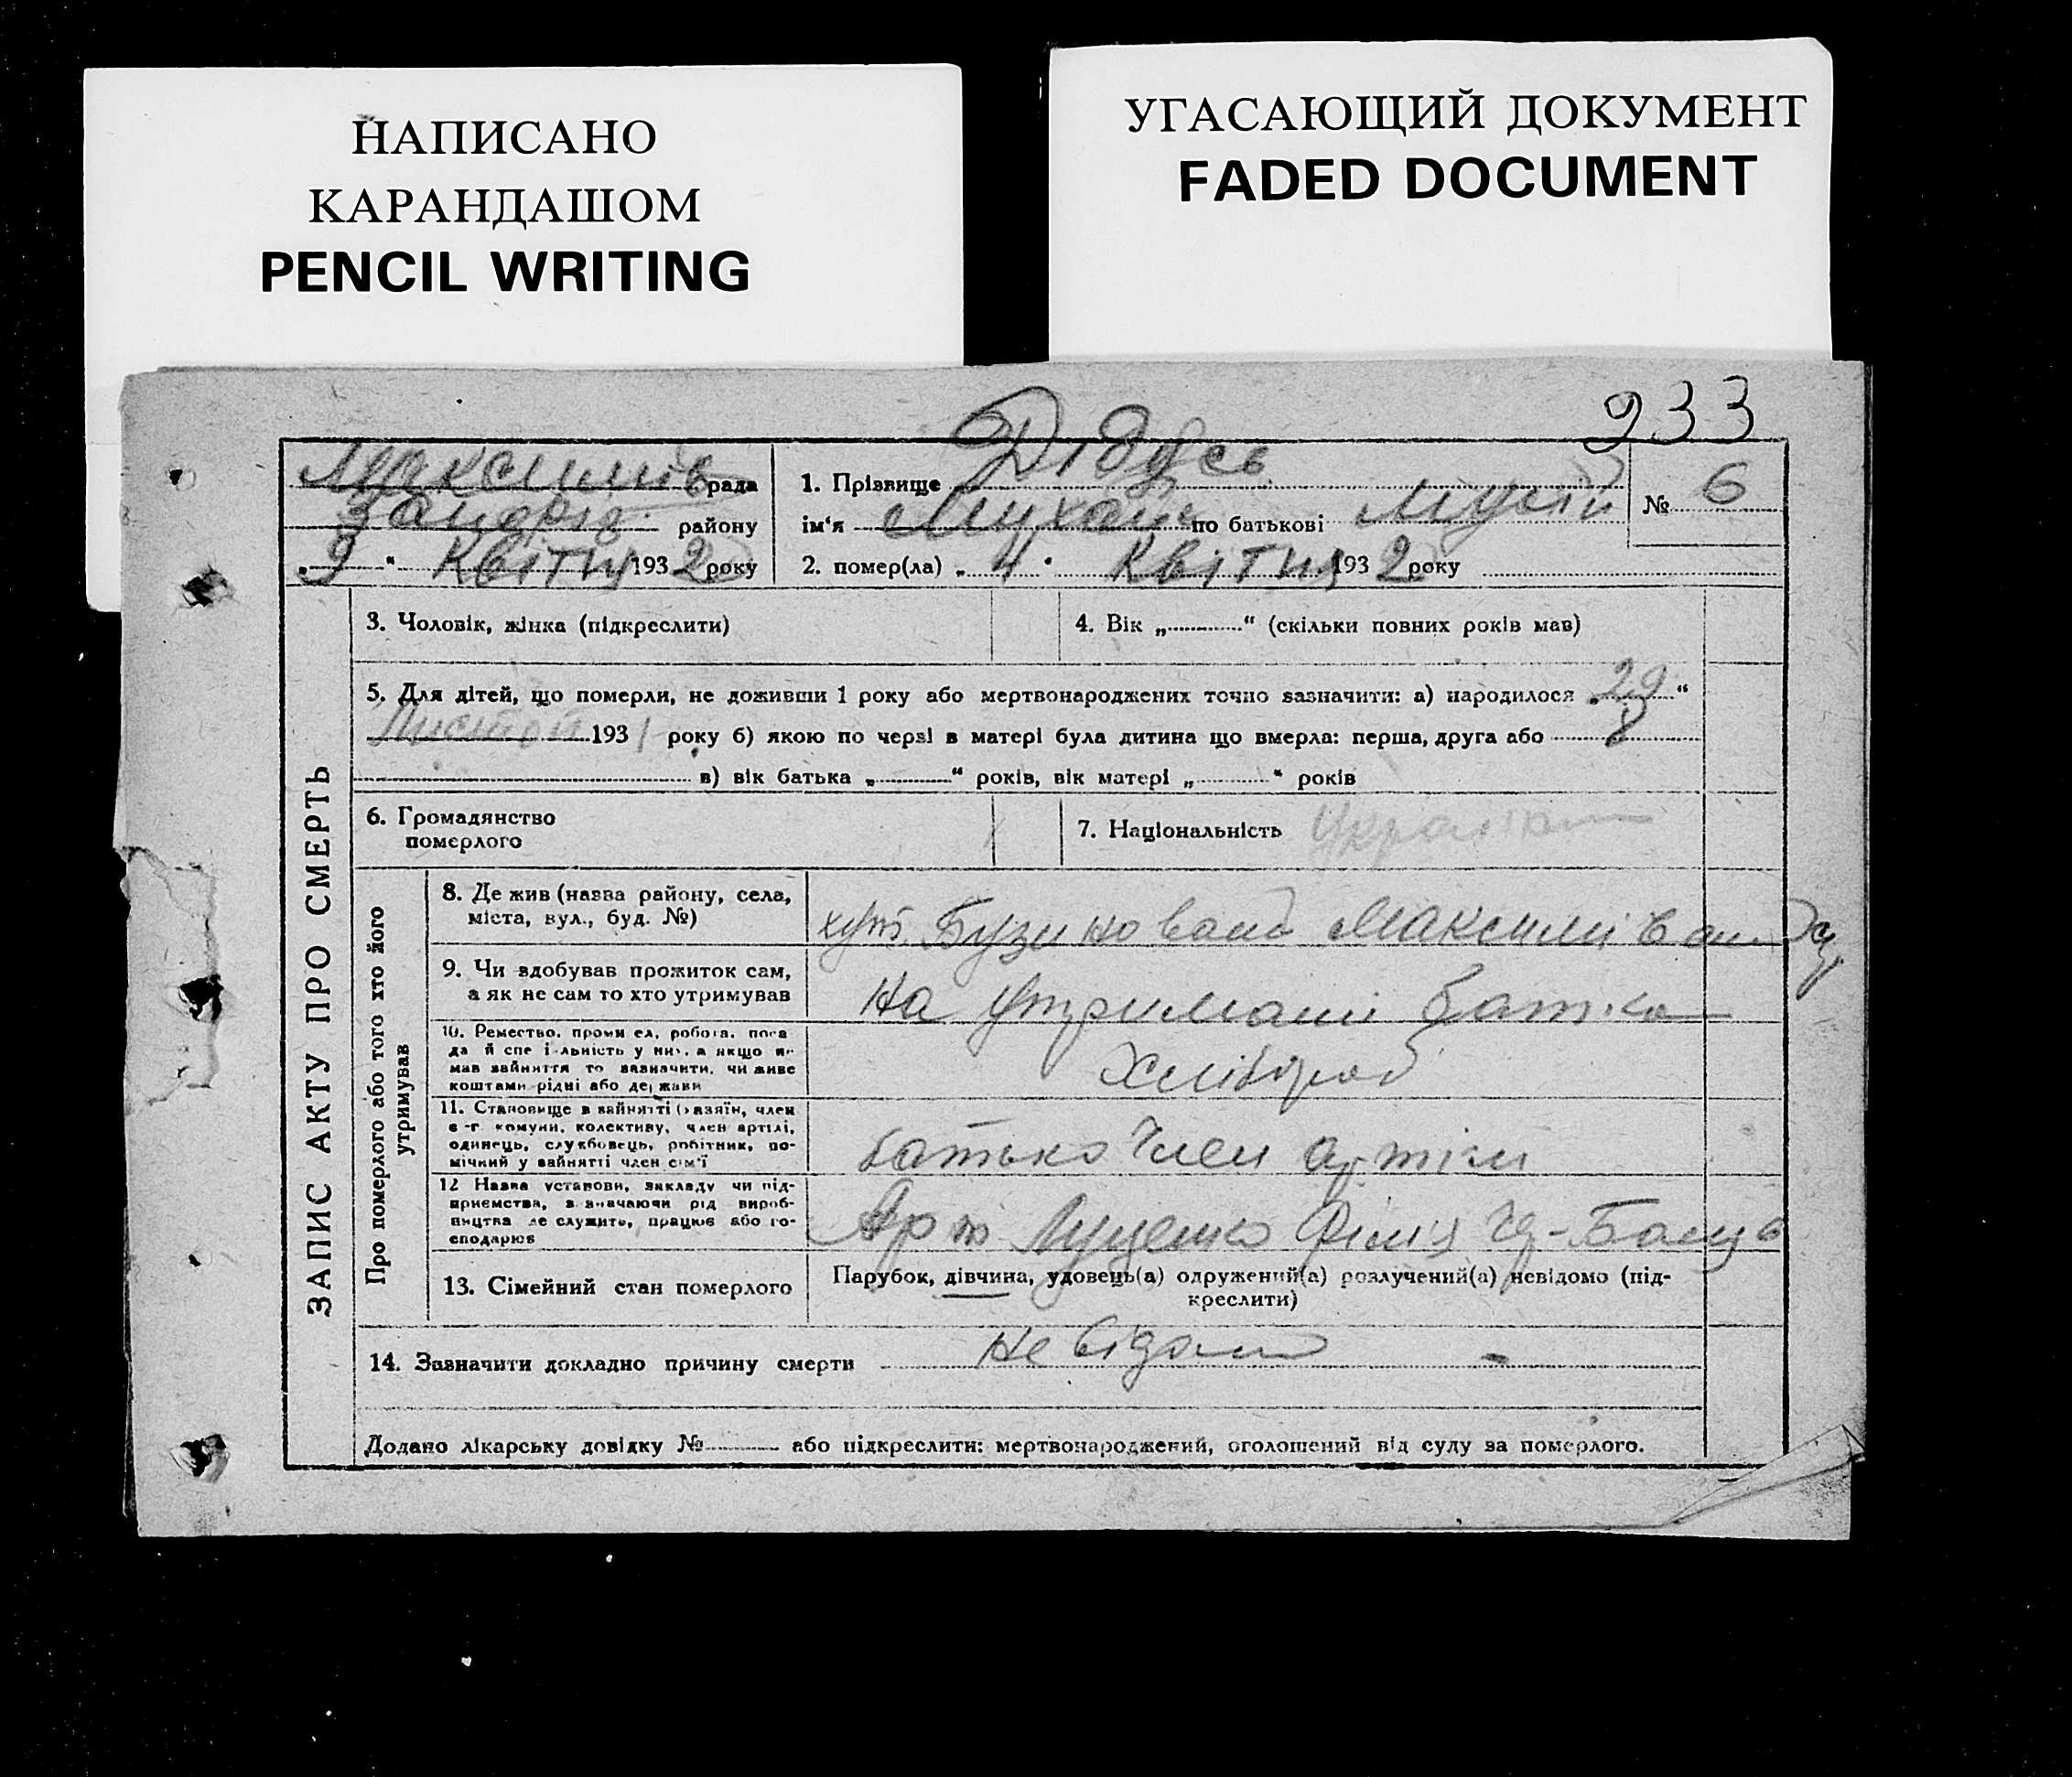 НАПИСАНО
КАРАНДАШОМ
PENCIL WRITING
УГАСАЮЩИЙ ДОКУМЕНТ
FADED DOCUMENT
933
Максимів рада
району
9 " Квітня 1932 року
1. Прізвище Дідусь
ім'я по батькові Мусій
2. помер(ла) „ 4 " Квітня 1932 року
№ 6
ЗАПИС АКТУ ПРО СМЕРТЬ
3. Чоловік, жінка (підкреслити)
4. Вік „ " (скільки повних років мав)
5. Для дітей, що померли, не доживши 1 року або мертвонароджених точно зазначити: а) народилося „ 29 "
1931 року б) якою по черзі в матері була дитина що вмерла: перша, друга або 8
в) вік батька „ " років, вік матері „ " років
6. Громадянство
померлого
7. Національність
Про померлого або того хто його
утримував
8. Де жив (назва району, села,
міста, вул., буд. №)
хут.
9. Чи здобував прожиток сам,
а як не сам то хто утримував
На утримані батька
10. Ремество, промисел, робота, поса
да й спеціяльність у них, а якщо не
мав зайняття то зазначити, чи живе
коштами рідні або держави
Хлібороб
11. Становище в зайнятті (хазяїн, член
с-г комуни, колективу, член артілі,
одинець, службовець, робітник, по-
мічний у зайнятті член сім'ї
батько член артіли
12 Назва установи, закладу чи під-
приємства, зазначаючи рід вироб-
ництва де служить, працює або го-
сподарює
Арт
13. Сімейний стан померлого
Парубок, дівчина, удовець(а) одружений(а) розлучений(а) невідомо (під-
креслити)
14. Зазначити докладно причину смерти не відомо
Додано лікарську довідку № або підкреслити: мертвонароджений, оголошений від суду за померлого.